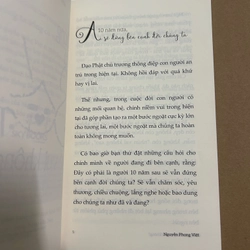 10 năm nữa,
Ai sẽ đứng bên cạnh đời chúng ta
Đạo Phật chủ trương thông điệp con người an
trú trong hiện tại. Không hồi đáp với quá khứ
hay vị lai.
Thế nhưng, trong cuộc đời con người có
những mối quan hệ, chính niềm vui trong hiện
tại đã góp phần tạo ra một bước ngoặt cực kỳ lớn
cho tương lai, một bước ngoặt mà chúng ta hoàn
toàn không mong muốn.
Có bao giờ bạn thử đặt những câu hỏi cho
chính mình về người đang đi bên cạnh, rằng:
Đây có phải là người 10 năm sau sẽ vẫn đứng
bên cạnh đời chúng ta? Sẽ vẫn chăm sóc, yêu
thương, chiều chuộng, lắng nghe hoặc bao dung
cho chúng ta như đã và đang?
Nguyễn Phong Việt